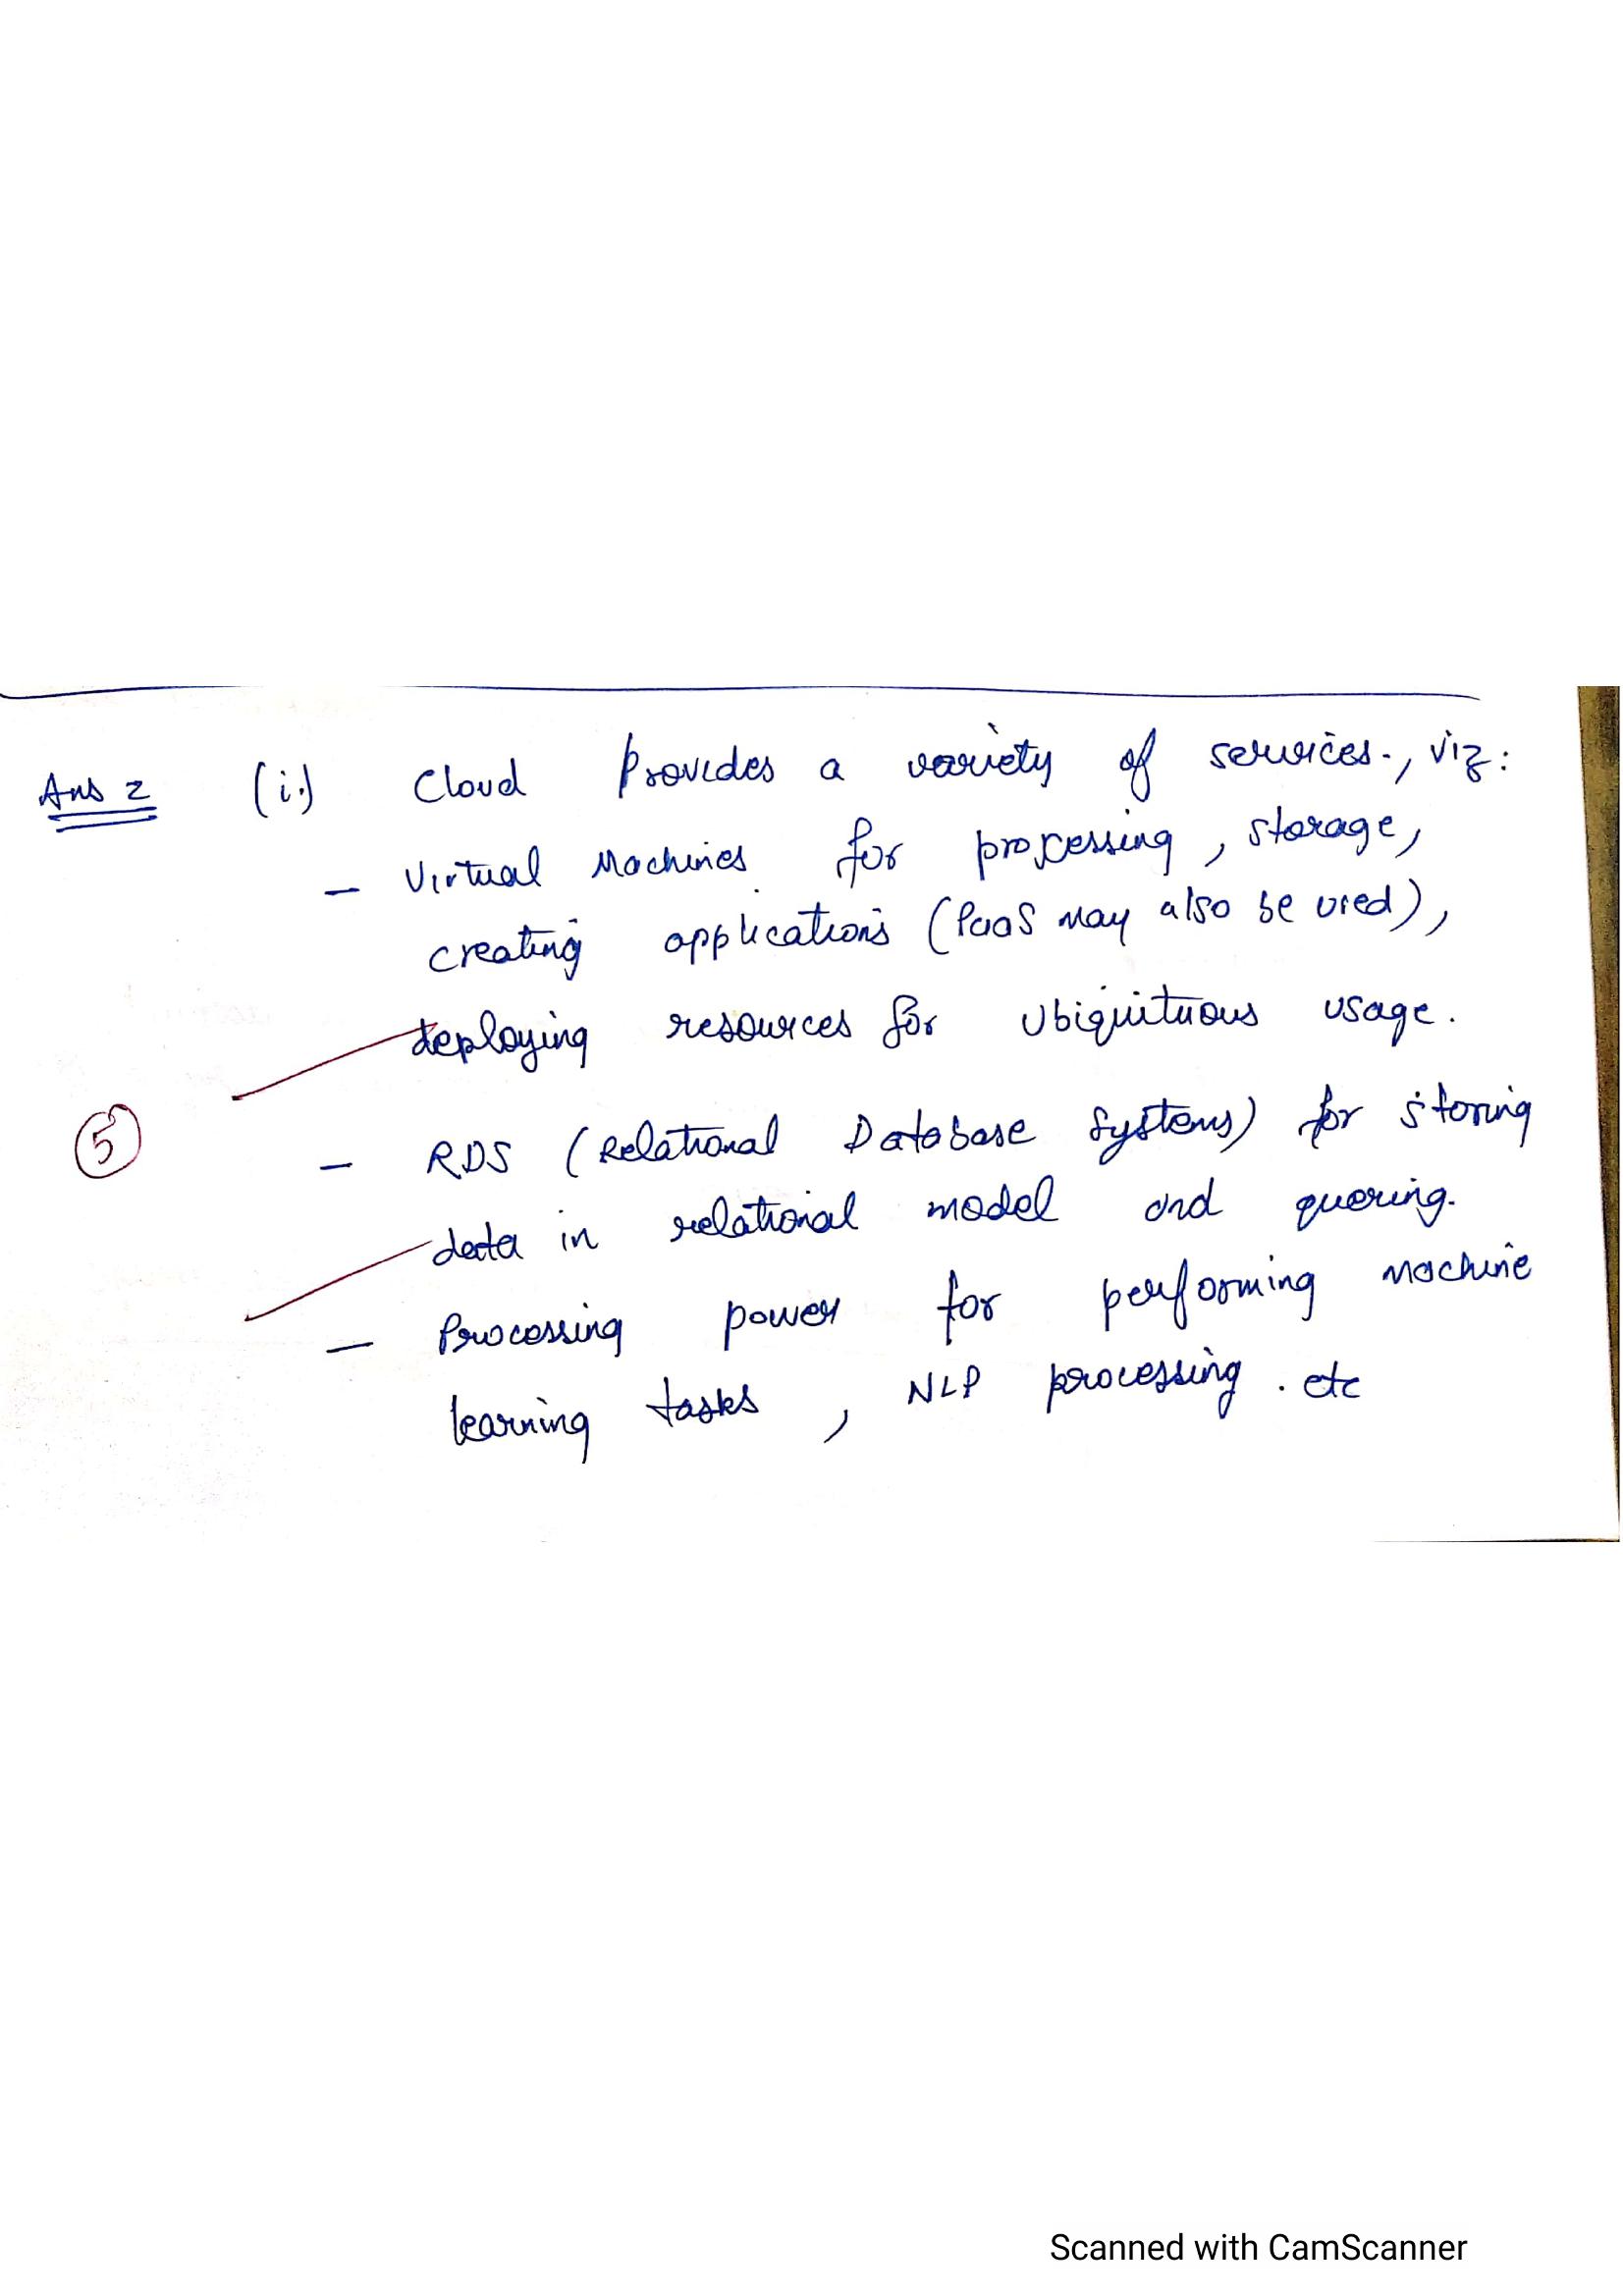 Ans 2 (i.) Cloud Provides a variety of services., viz:
- Virtual Machines for processing, storage,
creating applications (PaaS may also be used),
deploying resources for ubiquituous usage.
5
- RDS (Relational Database Systems) for storing
data in relational model and quering.
- Processing power for performing machine
learning tasks, NLP processing. etc
Scanned with CamScanner